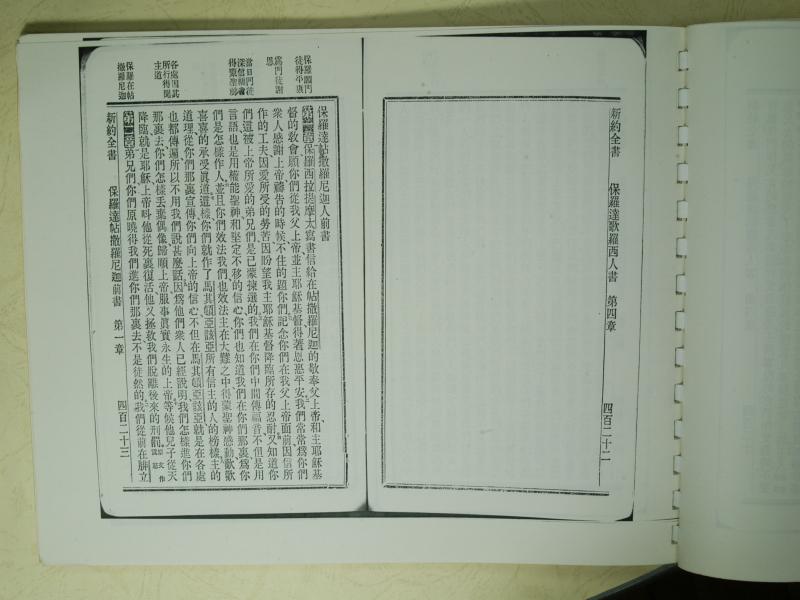 新約全書　保羅達歌羅西人書　第四章　四百二十二
保羅達帖撒羅尼迦人前書
第一章保羅西拉提摩太寫書信給在帖撒羅尼迦的敬奉父上帝和主耶穌基
督的教會願你們從我父上帝並主耶穌基督得著恩惠平安我們常常爲你們
衆人感謝上帝禱告的時候不住的題你們記念你們在我父上帝面前因信所
作的工夫因愛所受的勞苦因盼望我主耶穌基督降臨所存的忍耐又知道你
們這被上帝所愛的弟兄們是已蒙揀選的我們在你們中間傳福音不但是用
言語也是用權能聖神和堅定不移的信心你們也知道我們在你們那裏爲你
們是怎樣作人並且你們效法我們也效法主在大難之中得蒙聖神感動歡歡
喜喜的承受眞道這樣你們就作了馬其頓亞該亞所有信主的人的榜樣主的
道理從你們那裏宣傳你們向上帝的信心不但在馬其頓亞該亞就是在各處
也都傳遍所以不用我們說甚麽話因爲他們衆人已經說明我們怎樣進你們
那裏去你們怎樣丟棄偶像歸順上帝服事眞實永生的上帝等候他兒子從天
降臨就是耶穌上帝呌他從死裏復活他又拯救我們脫離後來的刑罰原文作震怒
第二章弟兄們你們原曉得我們進你們那裏去不是徒然的我們從前在腓立
保羅願門徒得平安
爲門徒謝恩
當日門徒深信
得蒙聖
各處因其所行得聞主道
保羅在帖撒羅尼迦
新約全書　保羅達帖撒羅尼迦前書　第一章　四百二十三